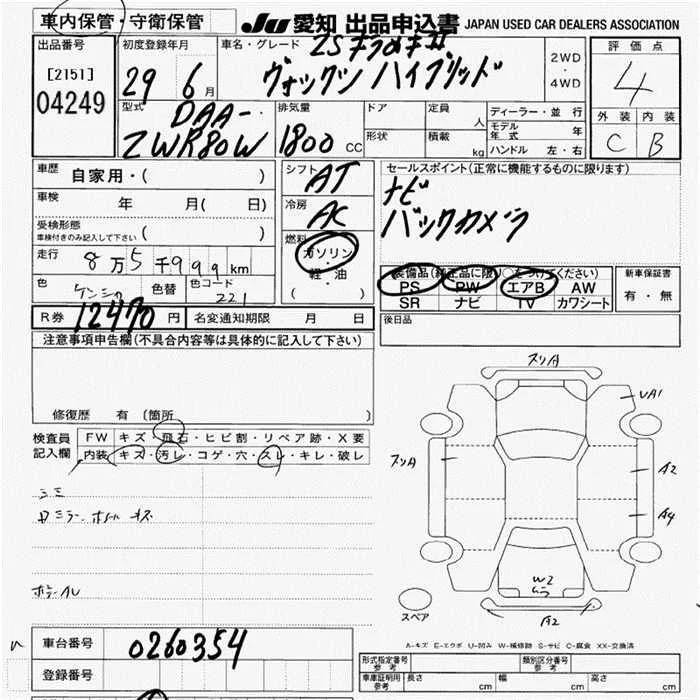 車内保管・守衛保管 JU 愛知 出品申込書 JAPAN USED CAR DEALERS ASSOCIATION
出品番号 初度登録年月 車名・グレード ZS キラメキ 評価点
[2151] 29 6月 ヴォクシー ハイブリッド 2WD・4WD 4
04249 型式 排気量 ドア 定員 人 ディーラー・並行 外装 内装
DAA- 1800 CC 形状 積載 kg モデル年式 年 C B
ZWR80W ハンドル 左・右
車歴 自家用・( ) シフト AT セールスポイント(正常に機能するものに限ります)
車検 年 月( 日) 冷房 AC ナビ
受検形態 車検付きのみ記入して下さい ( ) 燃料 バックカメラ
走行 8万5千999km ガソリン・軽油 装備品(純正品に限り○をつけてください) 新車保証書
色 色替 色コード 221 ( ) PS PW エアB AW 有・無
SR ナビ TV カワシート
R券 12470円 名変通知期限 月 日 後日品
注意事項申告欄(不具合内容等は具体的に記入して下さい)
修復歴 有(箇所 )
検査員記入欄 FW キズ・飛石・ヒビ割・リペア跡・X要
内装 キズ・汚レ・コゲ・穴・スレ・キレ・破レ
スリA
UA1
スリA
A2
A4
W2
ムラ
A2
スペア
A-キズ E-エクボ U-凹み W-補修跡 S-サビ C-腐食 XX-交換済
車台番号 0260354
登録番号
形式指定番号 参考 類別区分番号 参考
車庫証明用 参考 長さ cm 幅 cm 高さ cm